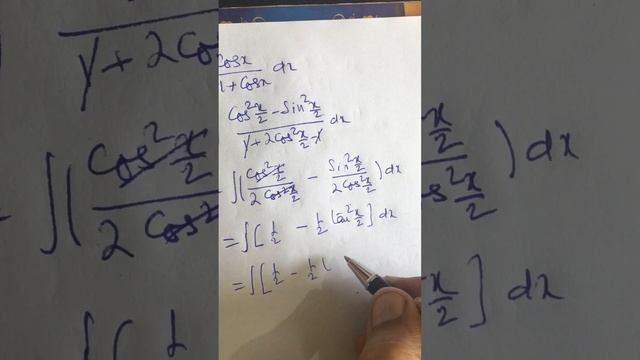 cosx/1+cosx dx
cos²x/2 − sin²x/2 / 1+2cos²x/2−1 dx
∫(cos²x/2 / 2cos²x/2 − sin²x/2 / 2cos²x/2) dx
= ∫[1/2 − 1/2 tan²x/2] dx
= ∫[1/2 − 1/2(